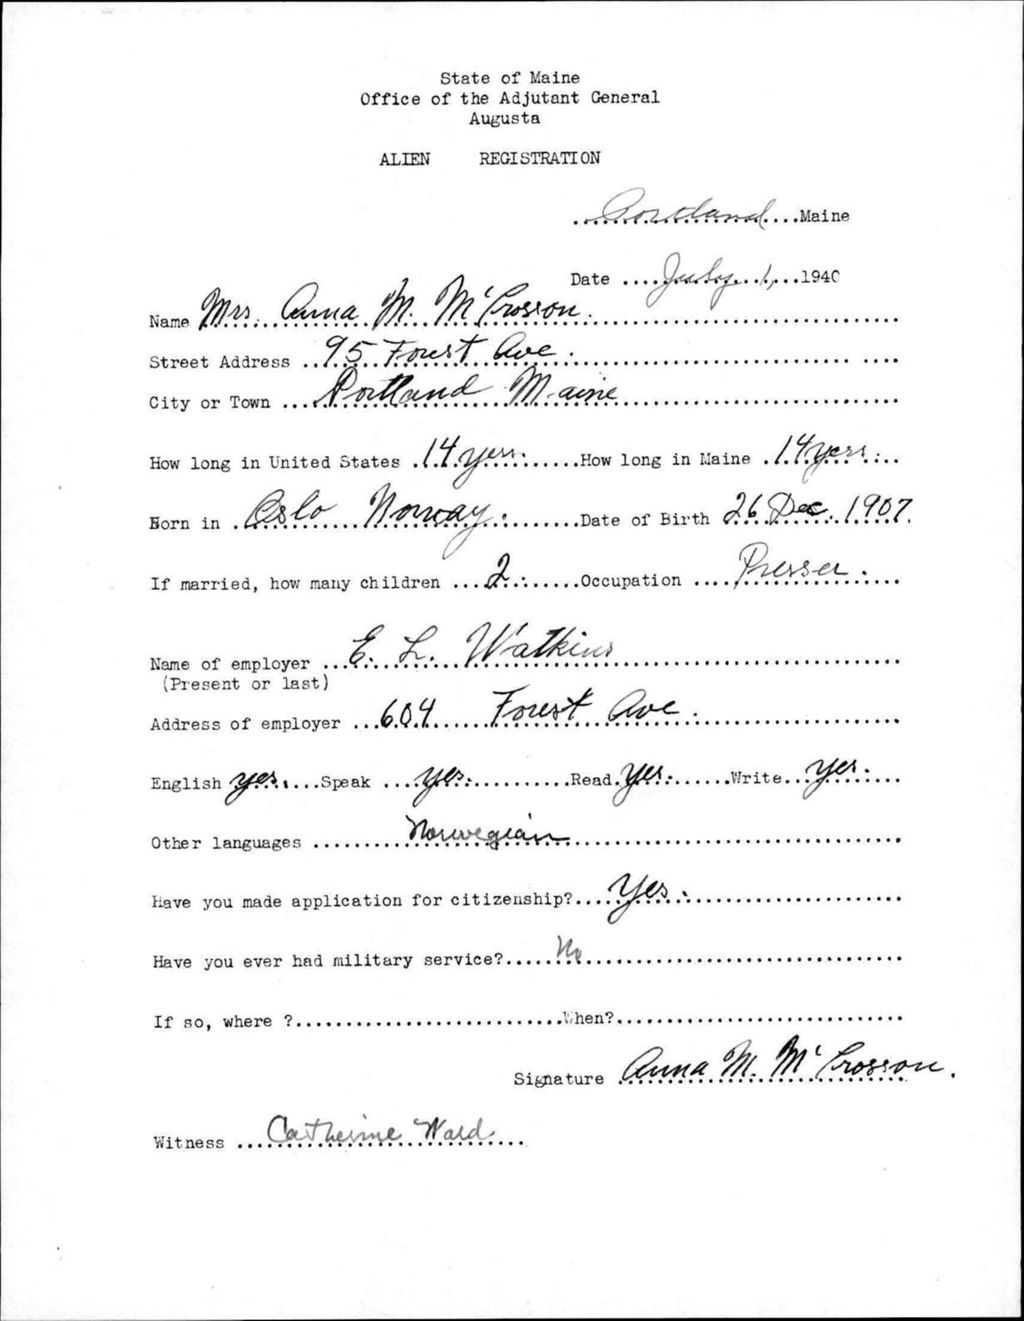 State of Maine
Office of the Adjutant General
Augusta
ALIEN REGISTRATION
Portland Maine
Date July 1, 1940
Name Mrs. Anna M. McCrosson.
Street Address 95 Forest Ave.
City or Town Portland Maine
How long in United States 14 yrs. How long in Maine 14 yrs.
Born in Oslo Norway. Date of Birth 26 Dec. 1907.
If married, how many children 2. Occupation Presser.
Name of employer E. L. Watkins
(Present or last)
Address of employer 604 Forest Ave.
English yes. Speak yes. Read yes. Write yes.
Other languages Norwegian
Have you made application for citizenship? Yes.
Have you ever had military service? No
If so, where ? When?
Signature Anna M. McCrosson.
Witness Catherine Ward